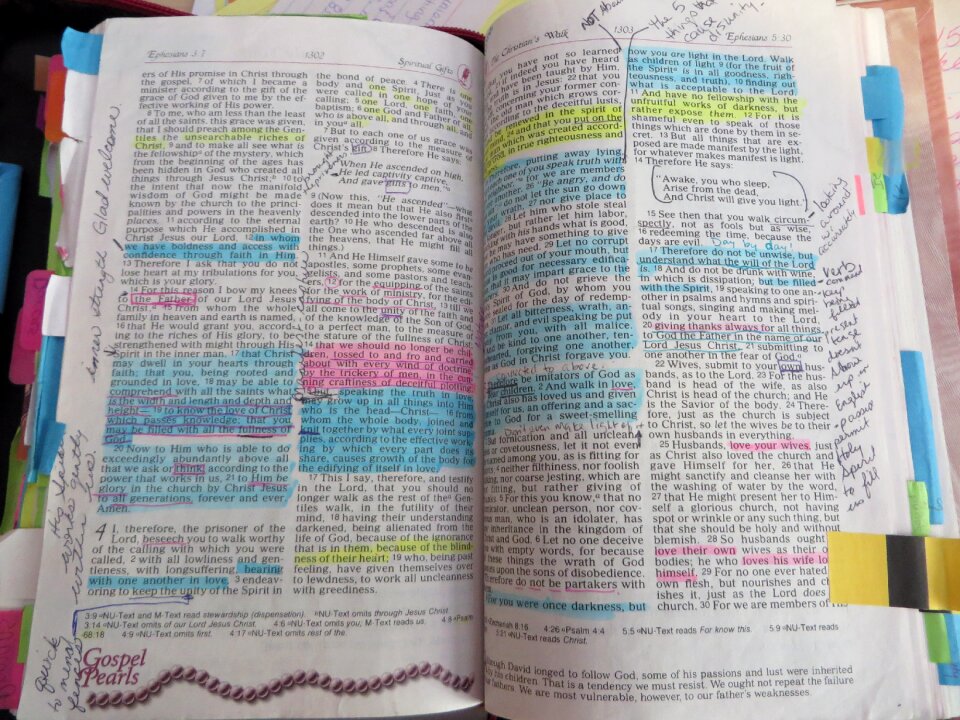 Ephesians 3:7
1302
Spiritual Gifts
ers of His promise in Christ through
the gospel, 7 of which I became a
minister according to the gift of the
grace of God given to me by the ef-
fective working of His power.
8 To me, who am less than the least
of all the saints, this grace was given,
that I should preach among the Gen-
tiles the unsearchable riches of
Christ, 9 and to make all see what is
the fellowship of the mystery, which
from the beginning of the ages has
been hidden in God who created all
things through Jesus Christ; 10 to
the intent that now the manifold
wisdom of God might be made
known by the church to the princi-
palities and powers in the heavenly
places, 11 according to the eternal
purpose which He accomplished in
Christ Jesus our Lord, 12 in whom
we have boldness and access with
confidence through faith in Him.
13 Therefore I ask that you do not
lose heart at my tribulations for you,
which is your glory.
14 For this reason I bow my knees
to the Father of our Lord Jesus
Christ, 15 from whom the whole
family in heaven and earth is named,
16 that He would grant you, accord-
ing to the riches of His glory, to be
strengthened with might through His
Spirit in the inner man, 17 that Christ
may dwell in your hearts through
faith; that you, being rooted and
grounded in love, 18 may be able to
comprehend with all the saints what
is the width and length and depth and
height— 19 to know the love of Christ
which passes knowledge; that you
may be filled with all the fullness of
God.
20 Now to Him who is able to do
exceedingly abundantly above all
that we ask or think, according to the
power that works in us, 21 to Him be
glory in the church by Christ Jesus
to all generations, forever and ever.
Amen.
4 I, therefore, the prisoner of the
Lord, beseech you to walk worthy
of the calling with which you were
called, 2 with all lowliness and gen-
tleness, with longsuffering, bearing
with one another in love, 3 endeav-
oring to keep the unity of the Spirit in
the bond of peace. 4 There is one
body and one Spirit, just as you
were called in one hope of your
calling; 5 one Lord, one faith, one
baptism; 6 one God and Father of all,
who is above all, and through all, and
in you all.
7 But to each one of us grace was
given according to the measure of
Christ's gift. 8 Therefore He says:
"When He ascended on high,
He led captivity captive,
And gave gifts to men."
9 (Now this, "He ascended"—what
does it mean but that He also first
descended into the lower parts of the
earth? 10 He who descended is also
the One who ascended far above all
the heavens, that He might fill all
things.)
11 And He Himself gave some to be
apostles, some prophets, some evan-
gelists, and some pastors and teach-
ers, 12 for the equipping of the saints
for the work of ministry, for the edi-
fying of the body of Christ, 13 till we
all come to the unity of the faith and
of the knowledge of the Son of God,
to a perfect man, to the measure of
the stature of the fullness of Christ;
14 that we should no longer be chil-
dren, tossed to and fro and carried
about with every wind of doctrine,
by the trickery of men, in the cun-
ning craftiness of deceitful plotting,
15 but, speaking the truth in love,
may grow up in all things into Him
who is the head—Christ— 16 from
whom the whole body, joined and
knit together by what every joint sup-
plies, according to the effective work-
ing by which every part does its
share, causes growth of the body for
the edifying of itself in love.
17 This I say, therefore, and testify
in the Lord, that you should no
longer walk as the rest of the Gen-
tiles walk, in the futility of their
mind, 18 having their understanding
darkened, being alienated from the
life of God, because of the ignorance
that is in them, because of the blind-
ness of their heart; 19 who, being past
feeling, have given themselves over
to lewdness, to work all uncleanness
with greediness.
3:9 NU-Text and M-Text read stewardship (dispensation). NU-Text omits through Jesus Christ.
3:14 NU-Text omits of our Lord Jesus Christ. 4:6 NU-Text omits you; M-Text reads us. 4:8 Psalm
68:18 4:9 NU-Text omits first. 4:17 NU-Text omits rest of the.
Gospel
Pearls
Glad welcome
inner strength
Christian's Walk
1303
Ephesians 5:30
the 5
things that
cause
disunity.
you have not so learned
indeed you have heard
been taught by Him,
is in Jesus: 22 that you
concerning your former con-
man which grows cor-
the deceitful lusts,
renewed in the spirit of
24 and that you put on the
which was created accord-
God, in true righteousness and
Therefore, putting away lying,
one of you speak truth with
neighbor," for we are members
26 "Be angry, and do
do not let the sun go down
wrath, 27 nor give place to
28 Let him who stole steal
but rather let him labor,
with his hands what is good,
who may have something to give
29 Let no corrupt
proceed out of your mouth, but
is good for necessary edifica-
it may impart grace to the
30 And do not grieve the
Spirit of God, by whom you
sealed for the day of redemp-
Let all bitterness, wrath, an-
clamor, and evil speaking be put
from you, with all malice.
be kind to one another, ten-
hearted, forgiving one another,
as God in Christ forgave you.
Therefore be imitators of God as
children. 2 And walk in love,
Christ also has loved us and given
Himself for us, an offering and a sac-
to God for a sweet-smelling
Don't even make light of
But fornication and all unclean-
or covetousness, let it not even
named among you, as is fitting for
4 neither filthiness, nor foolish
nor coarse jesting, which are
fitting, but rather giving of
thanks. 5 For this you know, that no
fornicator, unclean person, nor cov-
man, who is an idolater, has
inheritance in the kingdom of
Christ and God. 6 Let no one deceive
you with empty words, for because
these things the wrath of God
comes upon the sons of disobedience.
Therefore do not be partakers with
For you were once darkness, but
now you are light in the Lord. Walk
as children of light 9 (for the fruit of
the Spirit is in all goodness, righ-
teousness, and truth), 10 finding out
what is acceptable to the Lord.
11 And have no fellowship with the
unfruitful works of darkness, but
rather expose them. 12 For it is
shameful even to speak of those
things which are done by them in se-
cret. 13 But all things that are ex-
posed are made manifest by the light,
for whatever makes manifest is light.
14 Therefore He says:
"Awake, you who sleep,
Arise from the dead,
And Christ will give you light."
15 See then that you walk circum-
spectly, not as fools but as wise,
16 redeeming the time, because the
days are evil. Day by day!
17 Therefore do not be unwise, but
understand what the will of the Lord
is. 18 And do not be drunk with wine,
in which is dissipation; but be filled
with the Spirit, 19 speaking to one an-
other in psalms and hymns and spiri-
tual songs, singing and making mel-
ody in your heart to the Lord,
20 giving thanks always for all things
to God the Father in the name of our
Lord Jesus Christ, 21 submitting to
one another in the fear of God.
22 Wives, submit to your own hus-
bands, as to the Lord. 23 For the hus-
band is head of the wife, as also
Christ is head of the church; and He
is the Savior of the body. 24 There-
fore, just as the church is subject
to Christ, so let the wives be to their
own husbands in everything.
25 Husbands, love your wives, just
as Christ also loved the church and
gave Himself for her, 26 that He
might sanctify and cleanse her with
the washing of water by the word,
27 that He might present her to Him-
self a glorious church, not having
spot or wrinkle or any such thing, but
that she should be holy and without
blemish. 28 So husbands ought to
love their own wives as their own
bodies; he who loves his wife loves
himself. 29 For no one ever hated his
own flesh, but nourishes and cher-
ishes it, just as the Lord does the
church. 30 For we are members of His
looking
around
accurately
verb
keep
being
filled
present
tense
doesn't
show
up in
English
passive
permit
Holy
Spirit
to fill
us
Zechariah 8:16 4:26 Psalm 4:4 5:5 NU-Text reads For know this. 5:9 NU-Text reads
5:21 NU-Text reads Christ.
though David longed to follow God, some of his passions and lust were inherited
by his children. That is a tendency we must resist. We ought not repeat the failure
of our fathers. We are most vulnerable, however, to our father's weaknesses.